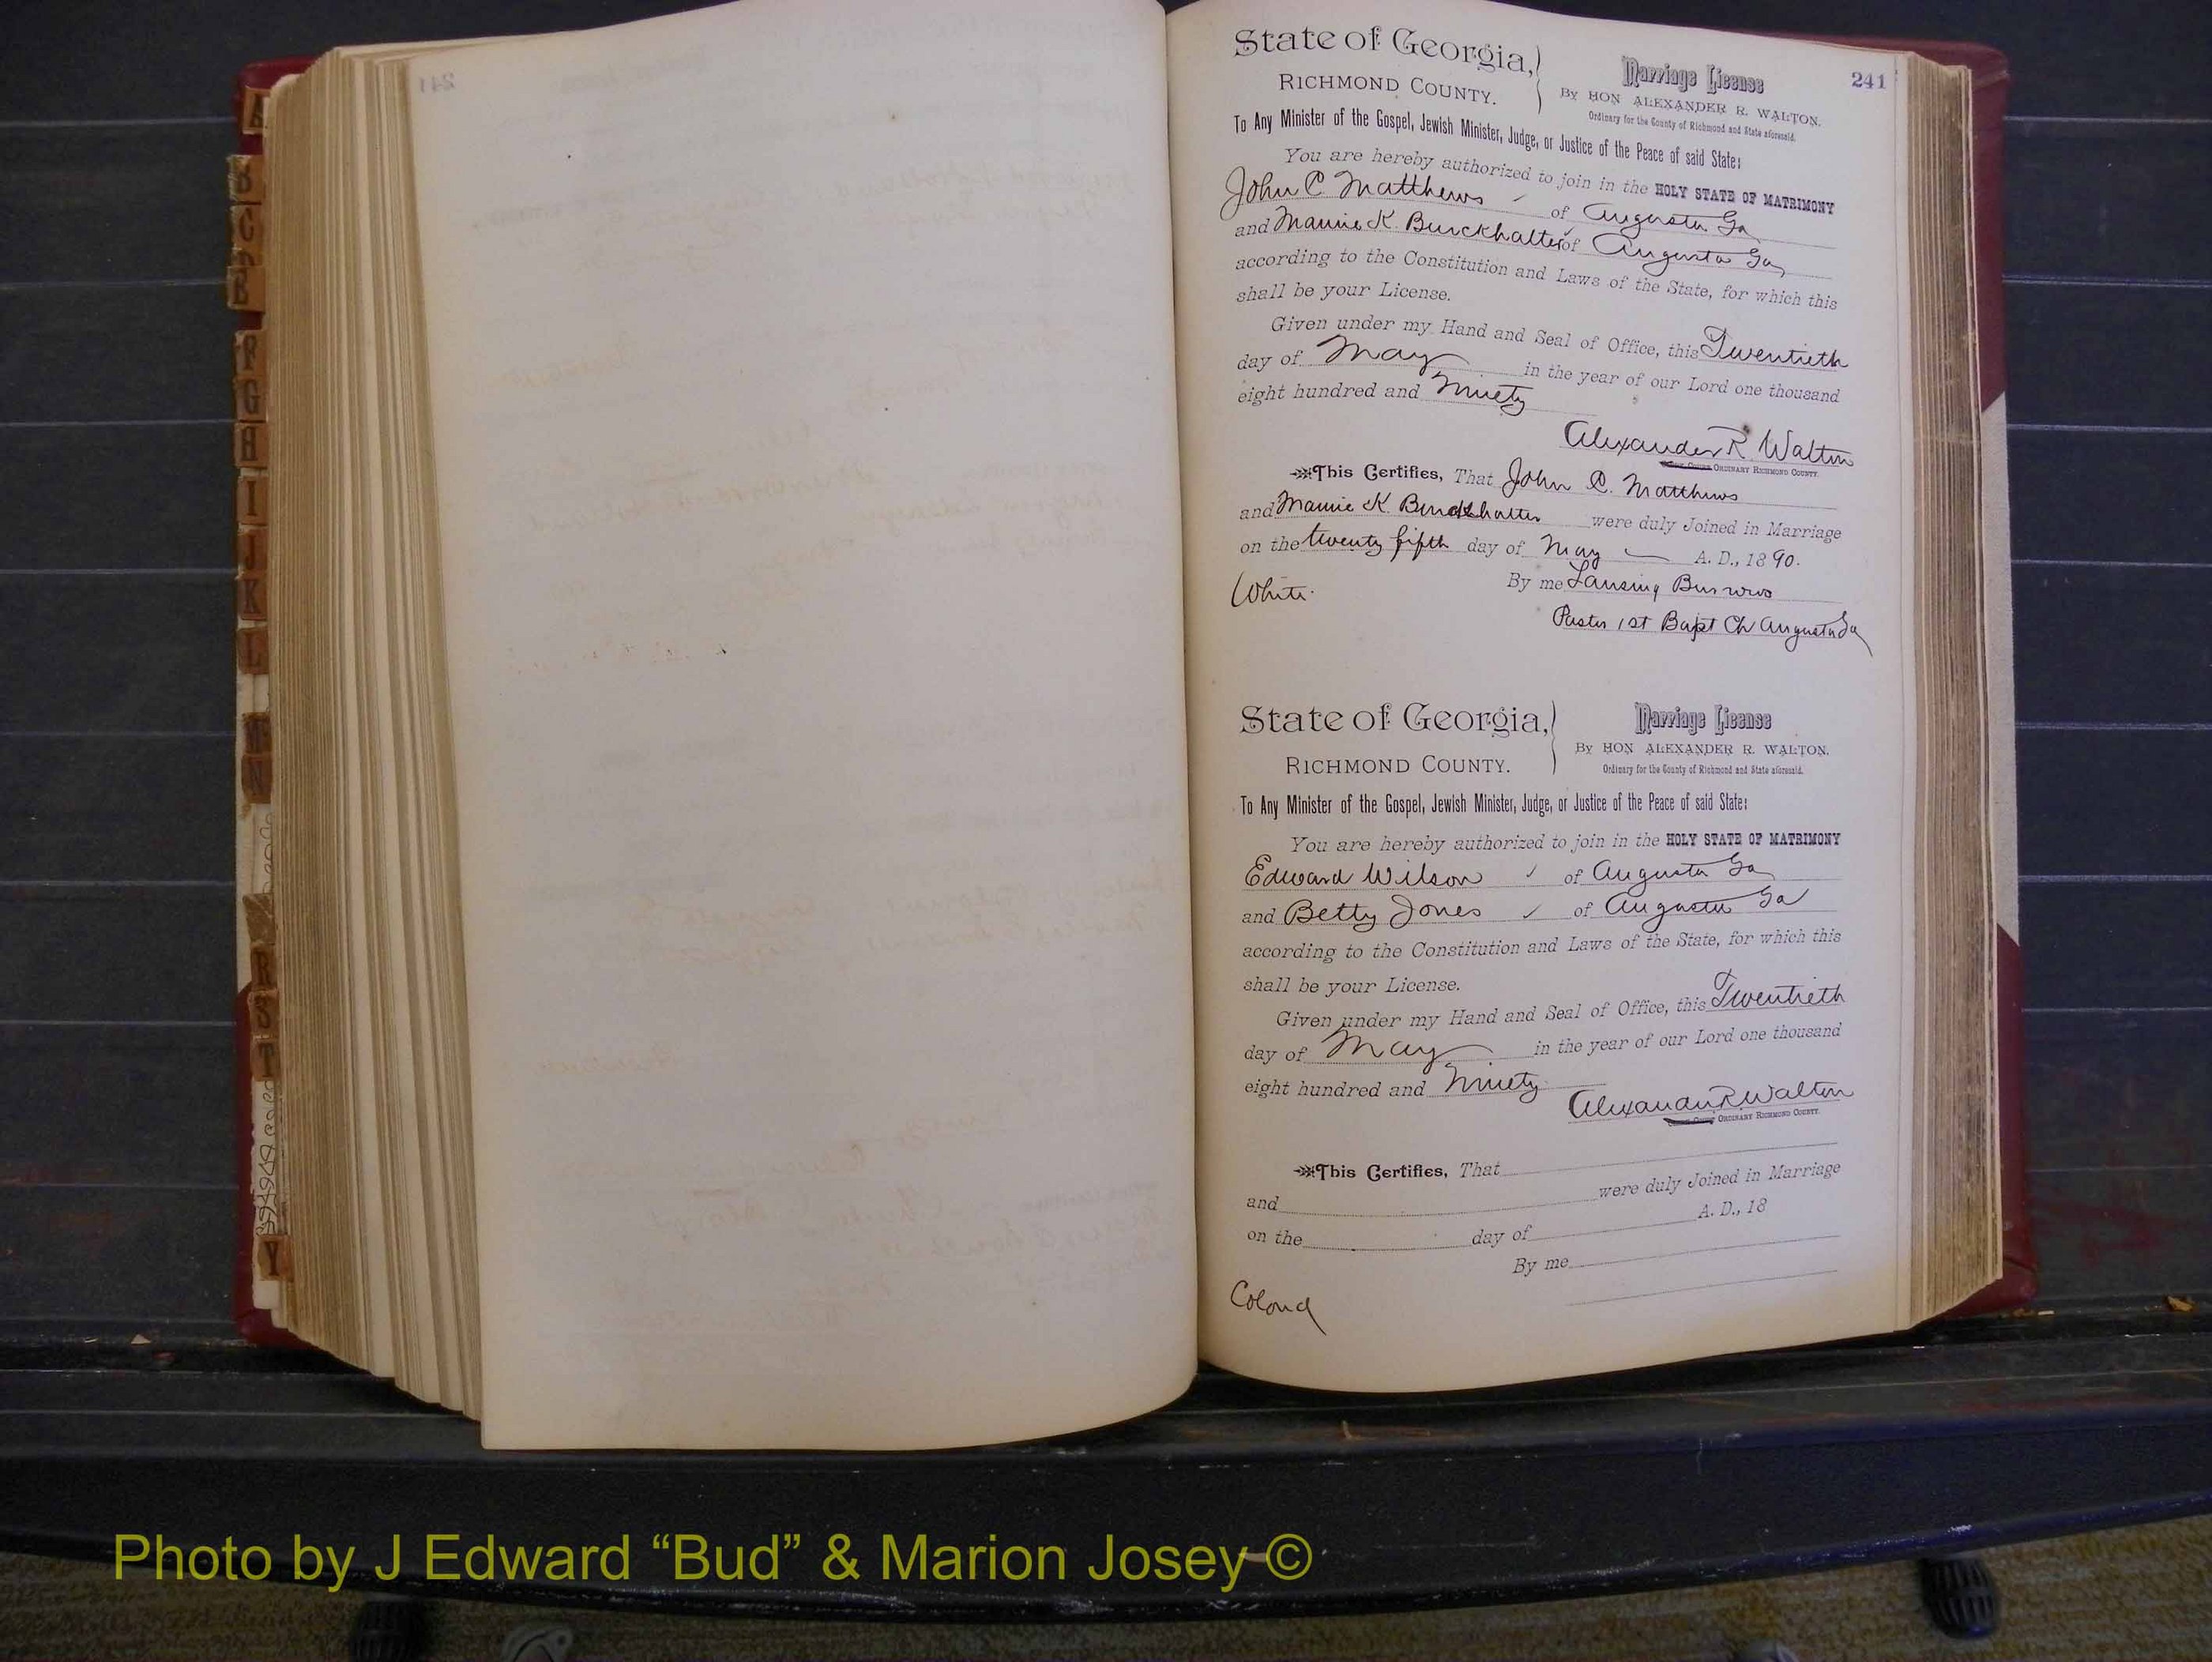 241
State of Georgia,
RICHMOND COUNTY.
Marriage License
BY HON ALEXANDER R. WALTON.
Ordinary for the County of Richmond and State aforesaid.
To Any Minister of the Gospel, Jewish Minister, Judge, or Justice of the Peace of said State:
You are hereby authorized to join in the HOLY STATE OF MATRIMONY
John C Matthews of Augusta Ga
and Mamie K. Burckhalter of Augusta Ga
according to the Constitution and Laws of the State, for which this
shall be your License.
Given under my Hand and Seal of Office, this Twentieth
day of May in the year of our Lord one thousand
eight hundred and Ninety
Alexander R. Walton
ORDINARY RICHMOND COUNTY.
This Certifies, That John C. Matthews
and Mamie K. Burckhalter were duly Joined in Marriage
on the twenty fifth day of May A. D., 1890.
By me Lansing Burrows
White.
Pastor 1st Bapt Ch Augusta Ga
State of Georgia,
RICHMOND COUNTY.
Marriage License
BY HON ALEXANDER R. WALTON.
Ordinary for the County of Richmond and State aforesaid.
To Any Minister of the Gospel, Jewish Minister, Judge, or Justice of the Peace of said State:
You are hereby authorized to join in the HOLY STATE OF MATRIMONY
Edward Wilson of Augusta Ga
and Betty Jones of Augusta Ga
according to the Constitution and Laws of the State, for which this
shall be your License.
Given under my Hand and Seal of Office, this Twentieth
day of May in the year of our Lord one thousand
eight hundred and Ninety
Alexander R. Walton
ORDINARY RICHMOND COUNTY.
This Certifies, That
and were duly Joined in Marriage
on the day of A. D., 18
By me
Colord
C
F
G
H
I
J
K
L
N
R
S
T
Y
Photo by J Edward “Bud” & Marion Josey ©